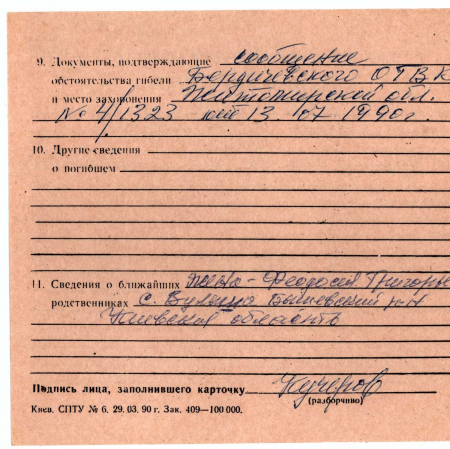 9. Документы, подтверждающие сообщение
обстоятельства гибели Бердичевского ОГВК
и место захоронения Житомирской обл.
№ 4/1323 от 13 07 1990г.
10. Другие сведения
о погибшем
11. Сведения о ближайших жена - Феодосия Григорь
родственниках с. Бышевский р-н
Киевская область
Подпись лица, заполнившего карточку Кучеров
(разборчиво)
Киев. СПТУ № 6. 29. 03. 90 г. Зак. 409—100 000.